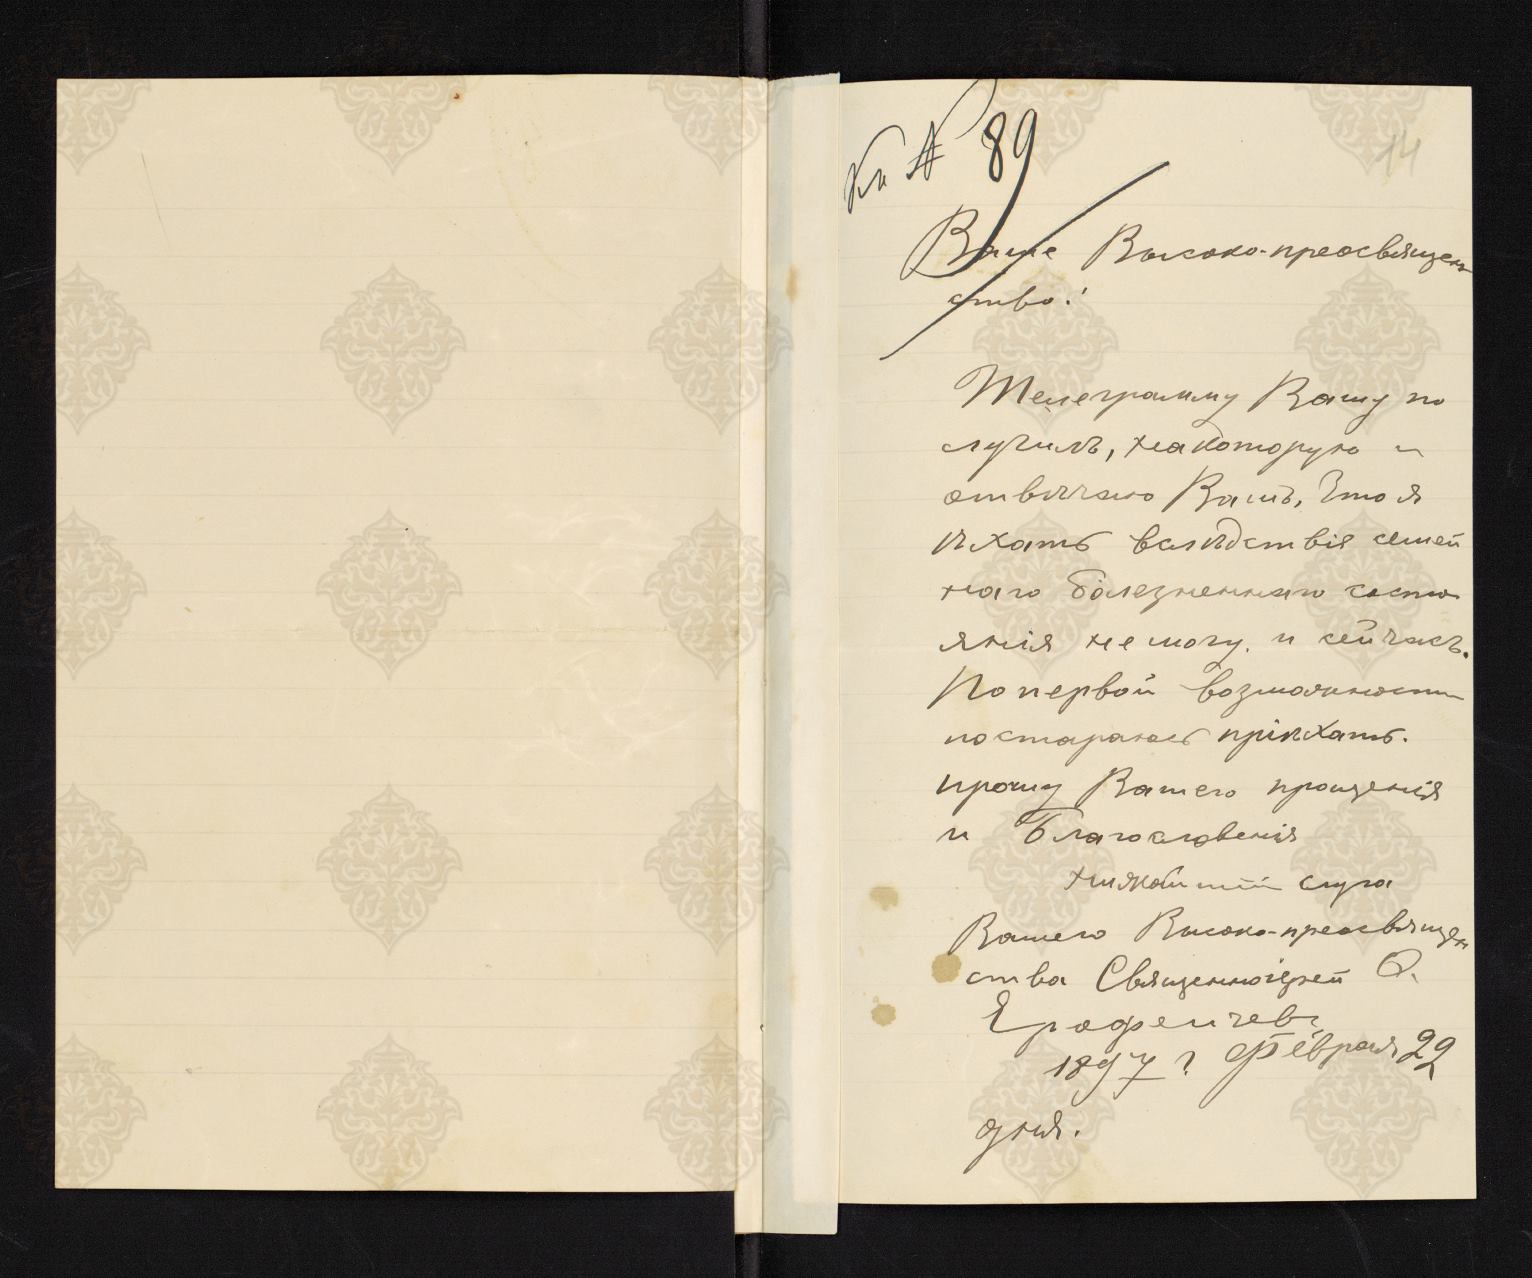 Къ № 89
14
Ваше Высоко-преосвящен
ство!
Телеграмму Вашу по
лучилъ, на которую и
отвѣчаю Вамъ, что я
ѣхать вслѣдствія семей
наго болезненнаго состо
янія не могу и сейчасъ.
По первой возможности
постараюсь пріѣхать.
прошу Вашего прощенія
и Благословенія
нижайшій слуга
Вашего Высоко-преосвящен
ства Священноіерей Ѳ.
Ерофеичевъ
1897 г. Февраля 22
дня.